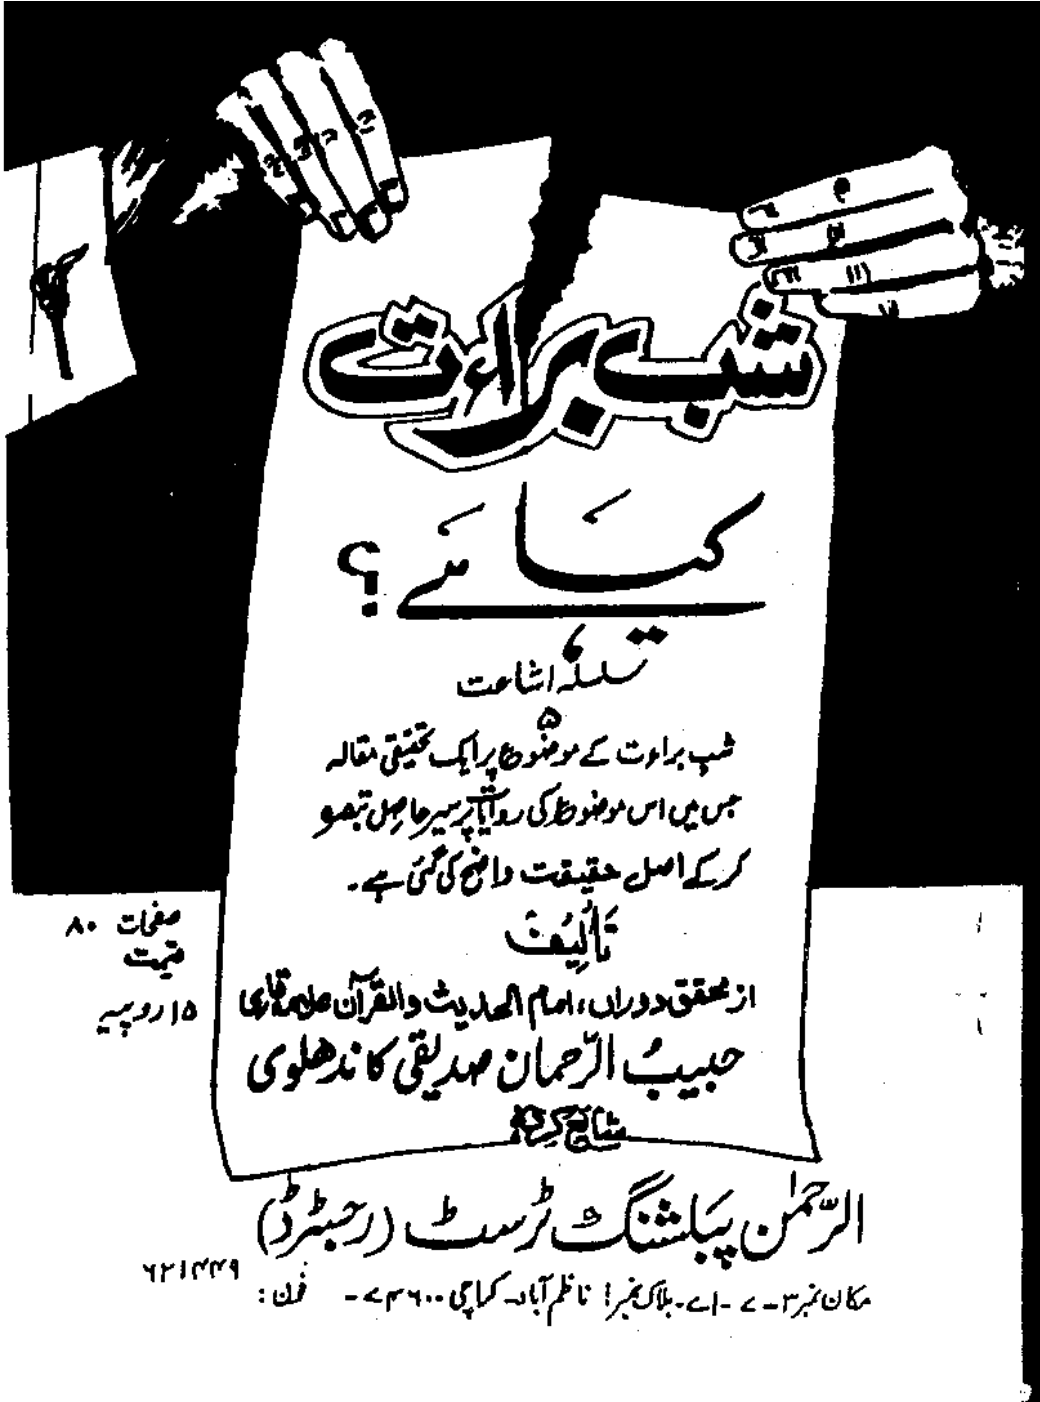 شب براءت
کیا ہے؟
سلسلہ اشاعت
۵
شب براءت کے موضوع پر ایک تحقیقی مقالہ
جس میں اس موضوع کی روایات پر سیر حاصل تبصرہ
کر کے اصل حقیقت واضح کی گئی ہے۔
صفحات ۸۰
قیمت
۱۵ روپیہ
تالیف
از محقق دوراں، امام الحدیث والقرآن علامہ قاری
حبیب الرّحمان صدیقی کاندھلوی
شائع کردہ
الرّحمٰن پبلشنگ ٹرسٹ (رجسٹرڈ)
مکان نمبر ۳-۷-اے، بلاک نمبر ۱ ناظم آباد۔ کراچی ۷۴۶۰۰- فون: ۶۲۱۴۴۹